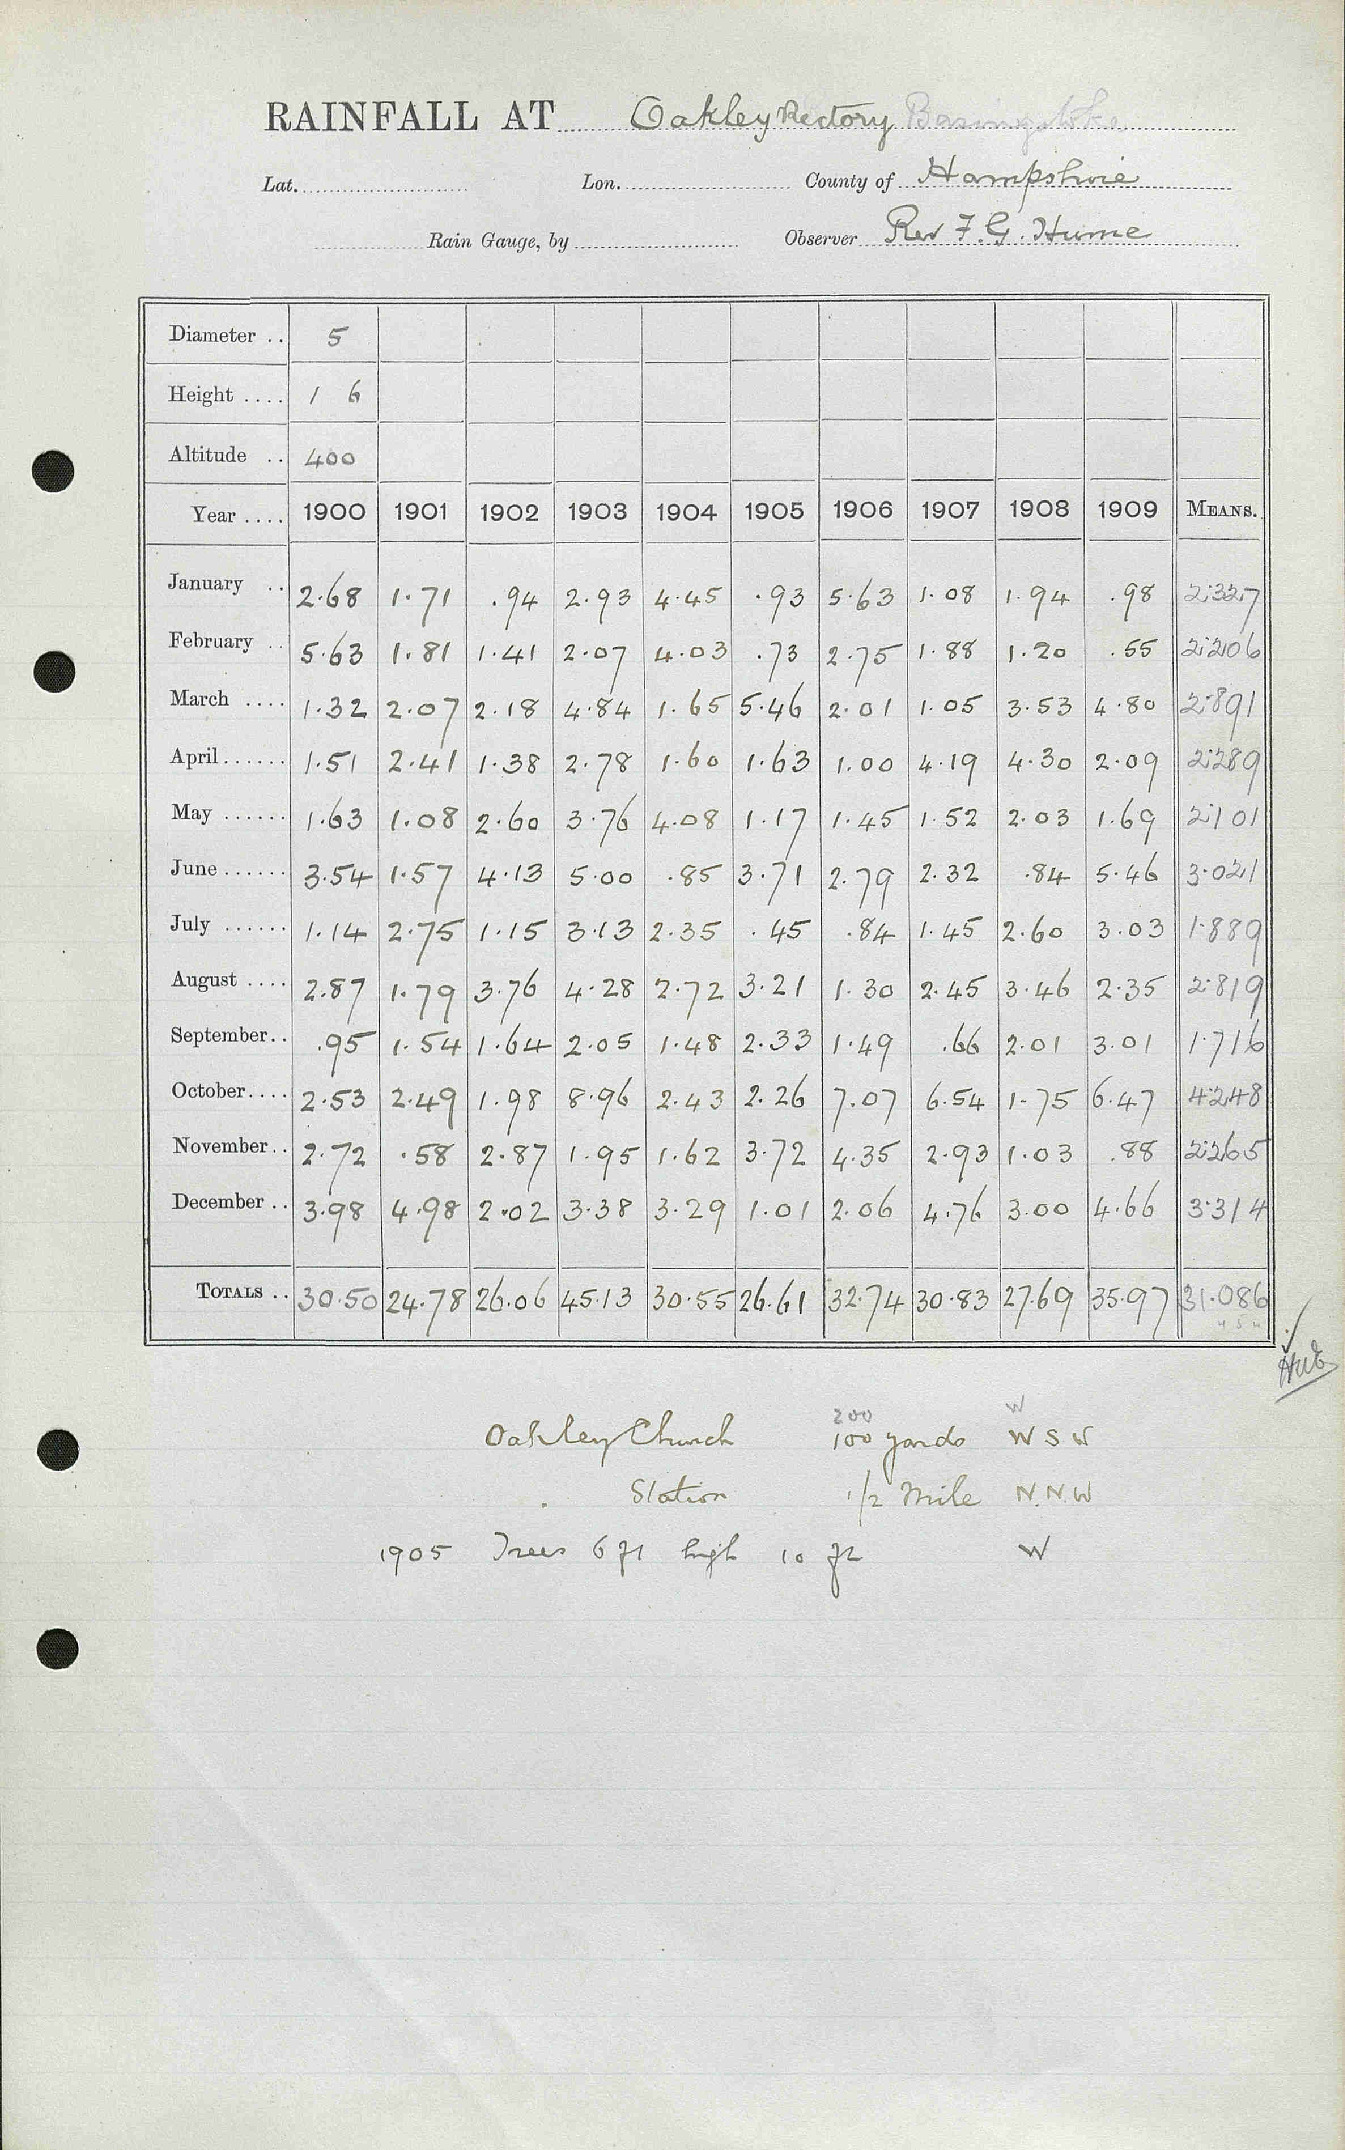 RAINFALL AT Oakley Rectory Basingstoke
Lat. Lon. County of Hampshire
Rain Gauge, by Observer Rev F. G. Hume
Diameter .. 5
Height .... 1 6
Altitude .. 400
Year .... 1900 1901 1902 1903 1904 1905 1906 1907 1908 1909 MEANS.
January .. 2.68 1.71 .94 2.93 4.45 .93 5.63 1.08 1.94 .98 2.327
February .. 5.63 1.81 1.41 2.07 4.03 .73 2.75 1.88 1.20 .55 2.206
March .... 1.32 2.07 2.18 4.84 1.65 5.46 2.01 1.05 3.53 4.80 2.891
April ...... 1.51 2.41 1.38 2.78 1.60 1.63 1.00 4.19 4.30 2.09 2.289
May ...... 1.63 1.08 2.60 3.76 4.08 1.17 1.45 1.52 2.03 1.69 2.101
June ...... 3.54 1.57 4.13 5.00 .85 3.71 2.79 2.32 .84 5.46 3.021
July ...... 1.14 2.75 1.15 3.13 2.35 .45 .84 1.45 2.60 3.03 1.889
August .... 2.87 1.79 3.76 4.28 2.72 3.21 1.30 2.45 3.46 2.35 2.819
September.. .95 1.54 1.64 2.05 1.48 2.33 1.49 .66 2.01 3.01 1.716
October.... 2.53 2.49 1.98 8.96 2.43 2.26 7.07 6.54 1.75 6.47 4.248
November.. 2.72 .58 2.87 1.95 1.62 3.72 4.35 2.93 1.03 .88 2.265
December .. 3.98 4.98 2.02 3.38 3.29 1.01 2.06 4.76 3.00 4.66 3.314
TOTALS .. 30.50 24.78 26.06 45.13 30.55 26.61 32.74 30.83 27.69 35.97 31.086
200 W
Oakley Church 100 yards W S W
Station 1/2 Mile N.N.W
1905 Trees 6 ft high 10 ft W